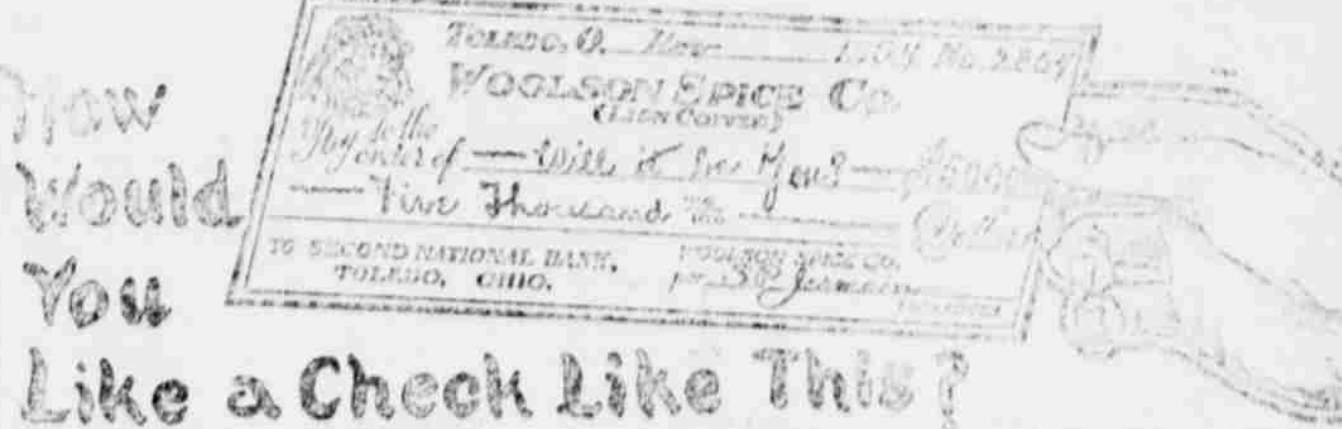 How
Would
You
Like a Check Like This?
TOLEDO, O. Nov 1904 No.
WOOLSON SPICE CO.
(LION COFFEE)
Pay to the
order of — Will it be You? — $5000
Five Thousand Dollars
TO SECOND NATIONAL BANK,
TOLEDO, OHIO.
WOOLSON SPICE CO.
per